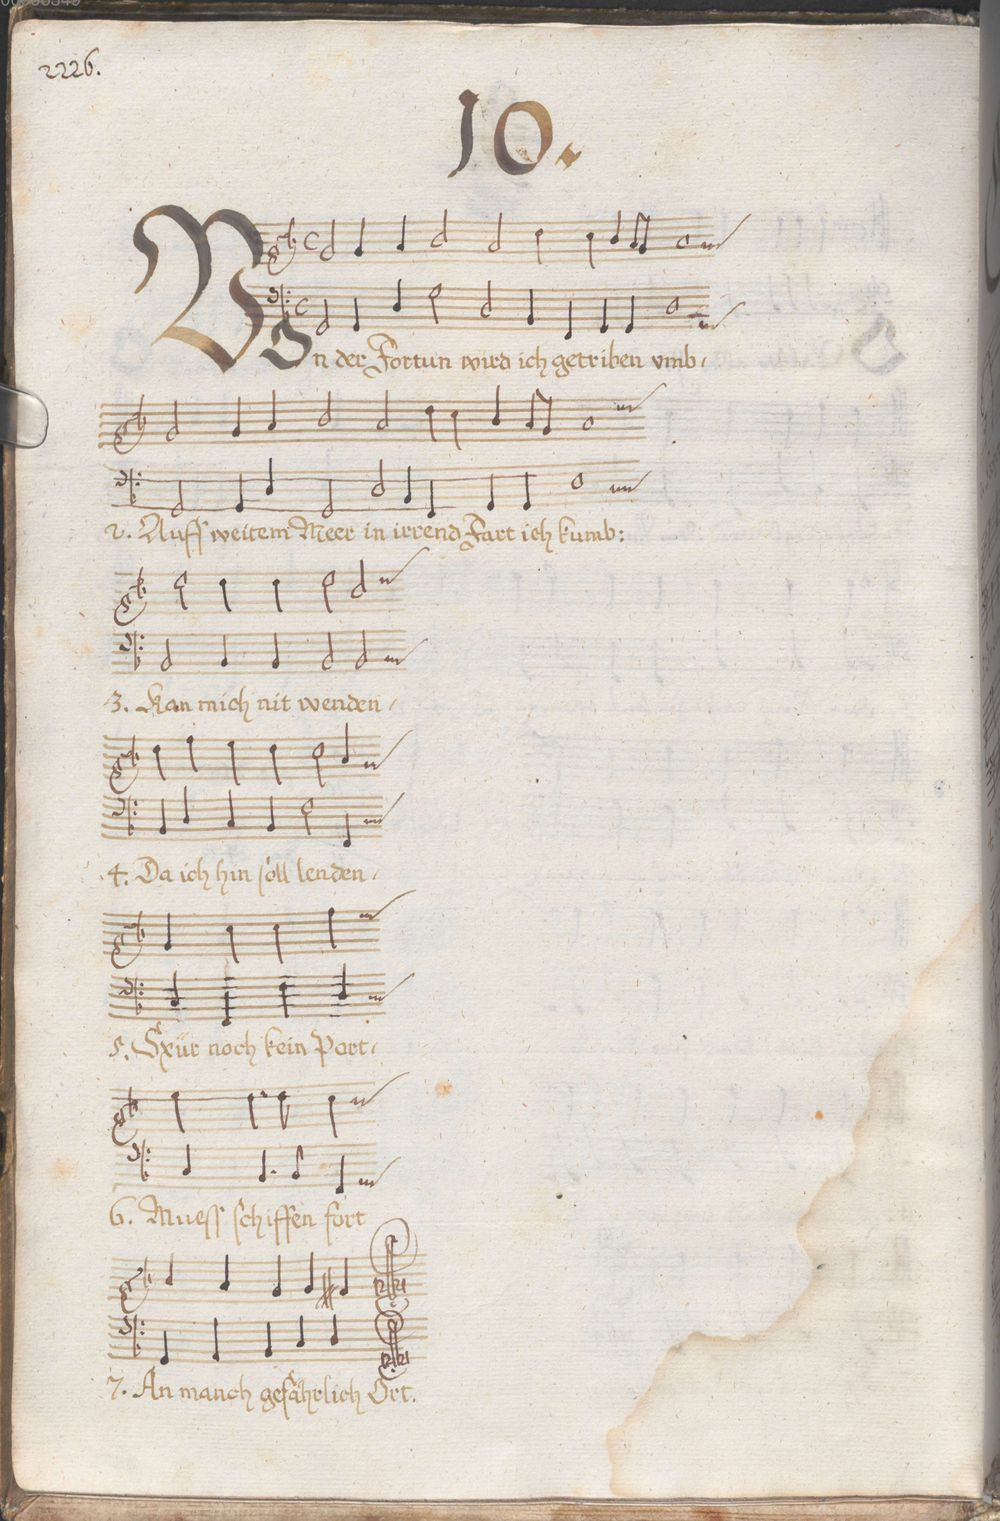 2226.
10.
VOn der Fortun wird ich getriben vmb/
2. Auff weitem Meer in irrend Fart ich kumb:
3. Kan mich nit wenden/
4. Da ich hin soll lenden/
5. noch kein Port/
6. Muess schiffen fort
7. An manch gefährlich Ort.